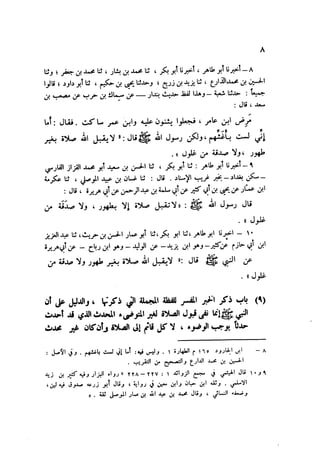 ٨
٨ – أخبرنا أبو طاهر ، أخبرنا أبو بكر ، ثنا محمد بن بشار ، ثنا محمد بن جعفر ؛ وثنا
الحسين بن محمد الذارع ، ثنا يزيد بن زريع ؛ وحدثنا يحيى بن حكيم ، ثنا أبو داود ؛ قالوا
جميعاً : حدثنا شعبة – وهذا لفظ حديث بندار – عن سماك بن حرب عن مصعب بن
سعد ، قال :
مَرِضَ ابن عامر ، فجعلوا يثنون عليه وابن عمر ساكت . فقال : أما
إني لست بأغشِّهم ، ولكن رسول الله ﷺ قال : « لا يقبل الله صلاة بغير
طهور ، ولا صدقة من غلول » .
٩ – أخبرنا أبو طاهر ، ثنا أبو بكر ، ثنا الحسن بن سعيد أبو محمد القزاز الفارسي
– سكن بغداد – بخبر غريب الإسناد . قال : ثنا غسان بن عبيد الموصلي ، ثنا عكرمة
ابن عمار عن يحيى بن أبي كثير عن أبي سلمة بن عبد الرحمن عن أبي هريرة ، قال :
قال رسول الله ﷺ : « لا تقبل صلاة إلا بطهور ، ولا صدقة من
غلول » .
١٠ – أخبرنا ابو طاهر ، ثنا ابو بكر ، ثنا أبو عمار الحسين بن حريث ، ثنا عبد العزيز
ابن أبي حازم عن كثير – وهو ابن يزيد – عن الوليد – وهو ابن رباح – عن أبي هريرة
عن النبي ﷺ قال : « لا يقبل الله صلاة بغير طهور ولا صدقة من
غلول » .
(٩) باب ذكر الخبر المفسر للفظة المجملة التي ذكرتها ، والدليل على أن
النبي ﷺ إنما نفى قبول الصلاة لغير المتوضىء المحدث الذي قد أحدث
حدثاً يوجب الوضوء ، لا كل قائم إلى الصلاة وان كان غير محدث
٨ – ابن الجارود ١٦٥ م الطهارة ١ . وليس فيه : أما إني لست باغشهم . وفي الأصل :
الحسين بن محمد الدارع والتصحيح من التقريب .
٩ و ١٠ قال الهيثمي في مجمع الزوائد ١ : ٢٢٧ – ٢٢٨ « رواه البزار وفيه كثير بن زيد
الاسلمي . وثقه ابن حبان وابن معين في رواية ، وقال أبو زرعة صدوق فيه لين ،
وضعفه النسائي ، وقال محمد بن عبد الله بن عمار الموصلي ثقة . »